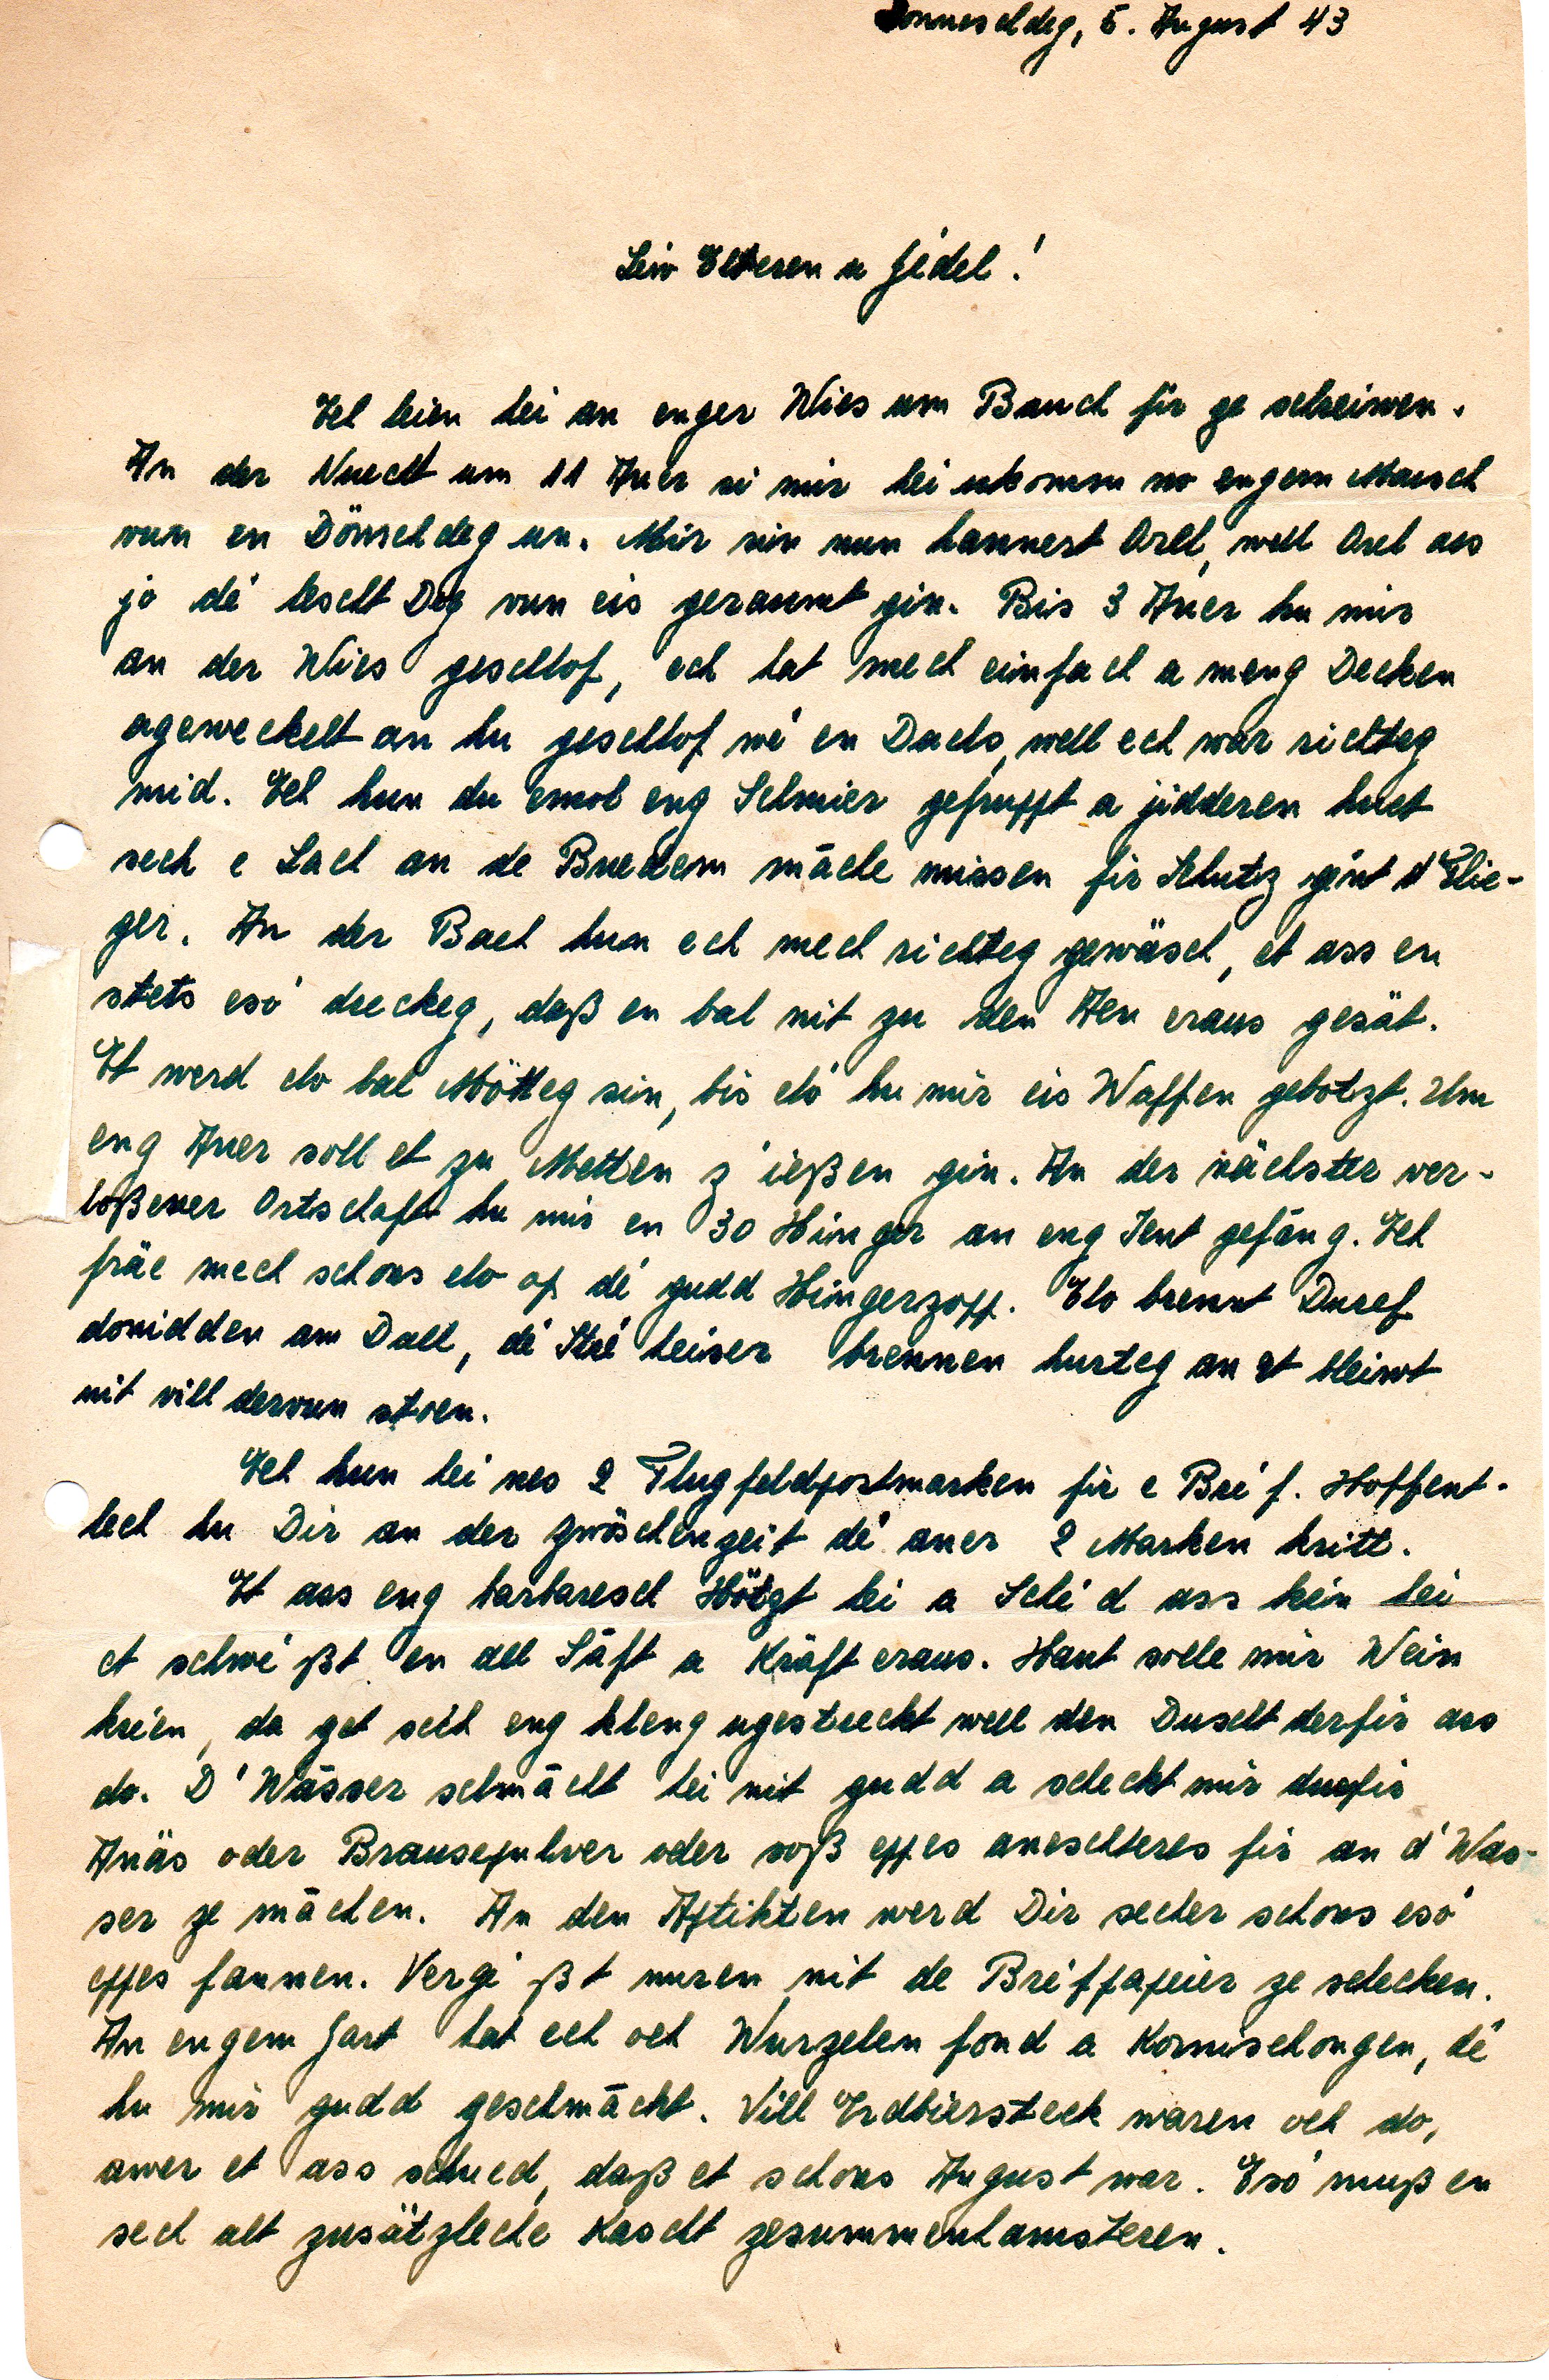 Donneschdeg, 5. August 43
Leiw Elteren a Jédel!
Ech leien hei an enger Wies um Bauch fir ze schreiwen.
An der Nuecht um 11 Auer si mir hei ukomm no engem Marsch
vun en Dönschdeg un. Mir sin nun hannert Orel, well Orel ass
jo dé lescht Deg vun eis geraumt gin. Bis 3 Auer hu mir
an der Wies geschlof, ech hat mech einfach a meng Decken
ageweckelt an hu geschlof wé en Dachs, well ech war richteg
mid. Ech hun du emol eng Schmier gefrupft a jidderen huet
sech e Lach an de Buedem mâche missen fir Schutz gént d'Flie-
ger. An der Bach hun ech mech richteg gewäsch, et ass en
stets esó dreckeg, daß en bal nit zu den Aen eraus gesät.
Et werd elo bal Mötteg sin, bis eló hu mir eis Waffen gebotzt. Um
eng Auer soll et zu Metten z'ießen gin. An der nächster ver-
loßener Ortschaft hu mir en 30 Hinger an eng Ient gefâng. Ech
fräe mech schons elo op dé gudd Hingerzopp. Elo brennt Duref
donidden am Dall, dé Stréheiser brennen hurteg an et bleiwt
nit vill dervun stoen.
Ech hun hei nes 2 Flugfeldpostmarken fir e Bréf. Hoffent-
lech hu Dir an der Zwöschenzeit dé aner 2 Marken kritt.
Et ass eng barbaresch Hötzt hei a Schéd ass kein hei
et schwéßt en all Säft a Kräft eraus. Haut solle mir Wein
kréien, da get sech eng kleng ugestreckt well den Duscht derfir ass
do. D'Wâsser schmâcht hei nit gudd a scheckt mir duefir
Anäs oder Brausepulver oder soß eppes aneschteres fir an d'Was-
ser ze mâchen. An den Aptikten werd Dir secher schons esó
eppes fannen. Vergéßt nuren nit de Bréfpapeier ze schecken.
An engem Gart hat ech och Wurzelen fond a Kornischongen, dé
hu mir gudd geschmâcht. Vill Erdbiersteck waren och do,
awer et ass schued, daß et schons August war. Esó muß en
sech alt zusätzleche Kascht zesummenhamsteren.